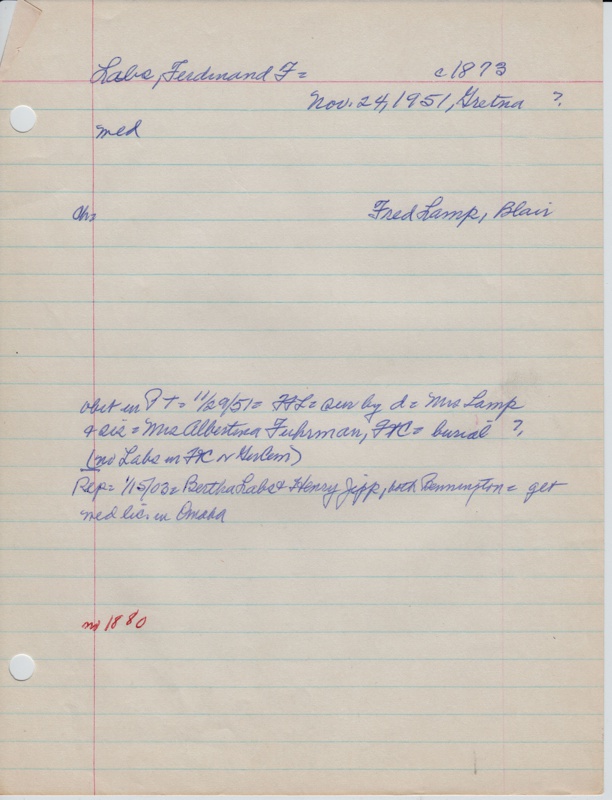 Labs, Ferdinand F= c1873
Nov. 24, 1951, Gretna ?
med
ch= Fred Lamp, Blair
obit in PT= 11/29/51= FFL= sur by d= Mrs Lamp
& sis= Mrs Albertena Fuhrman, FXC= burial ?
(no Labs in FXC
Rep= 1/15/03= Bertha Labs & Henry Jipp, both Bennington= get
med lic. in Omaha
no 1880